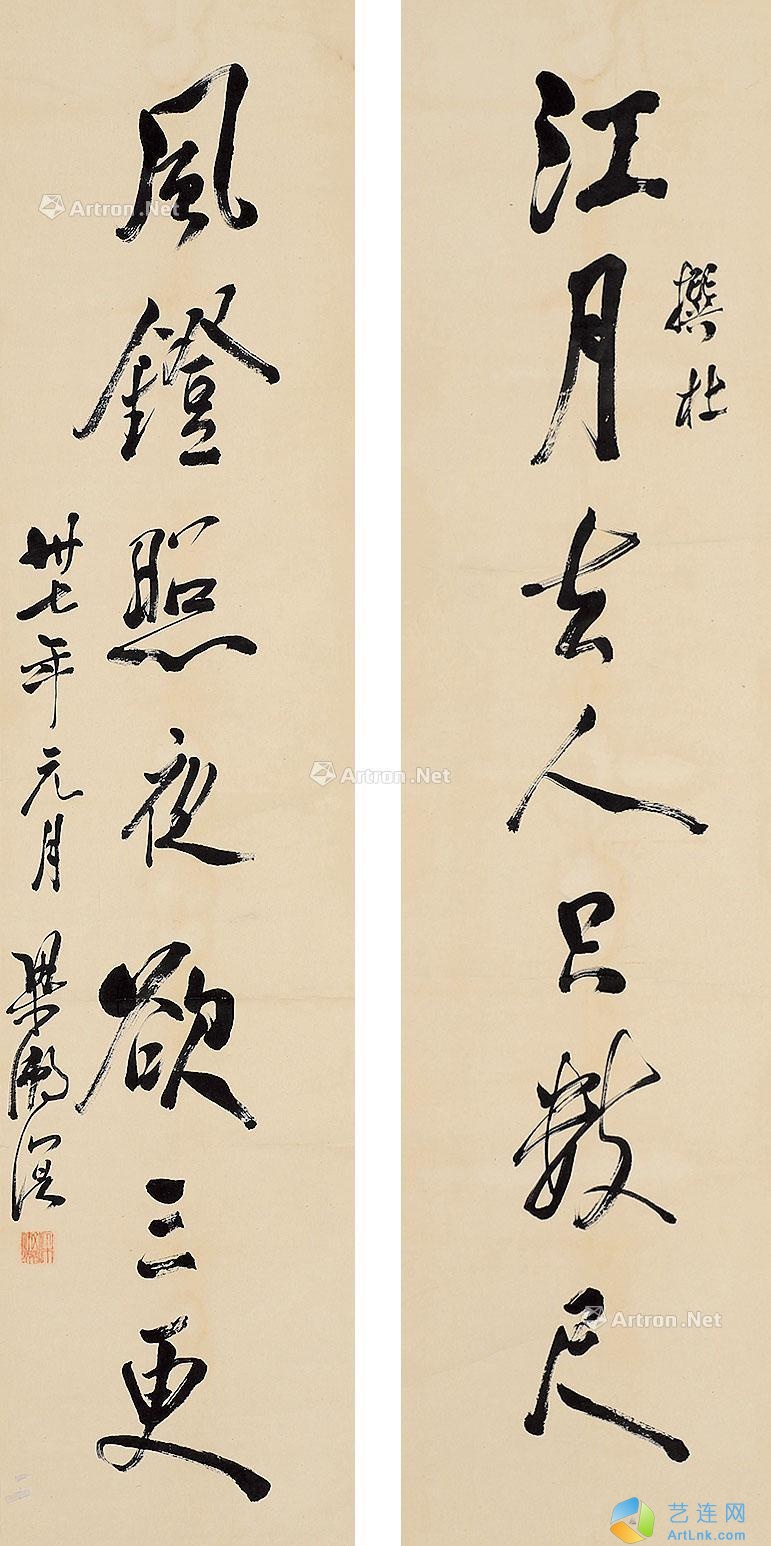 江月去人只數尺
撰杜
風鐙照夜欲三更
卅七年元月 梁漱溟
Artron.Net
Artron.Net
Artron.Net
艺连网
ArtLnk.com